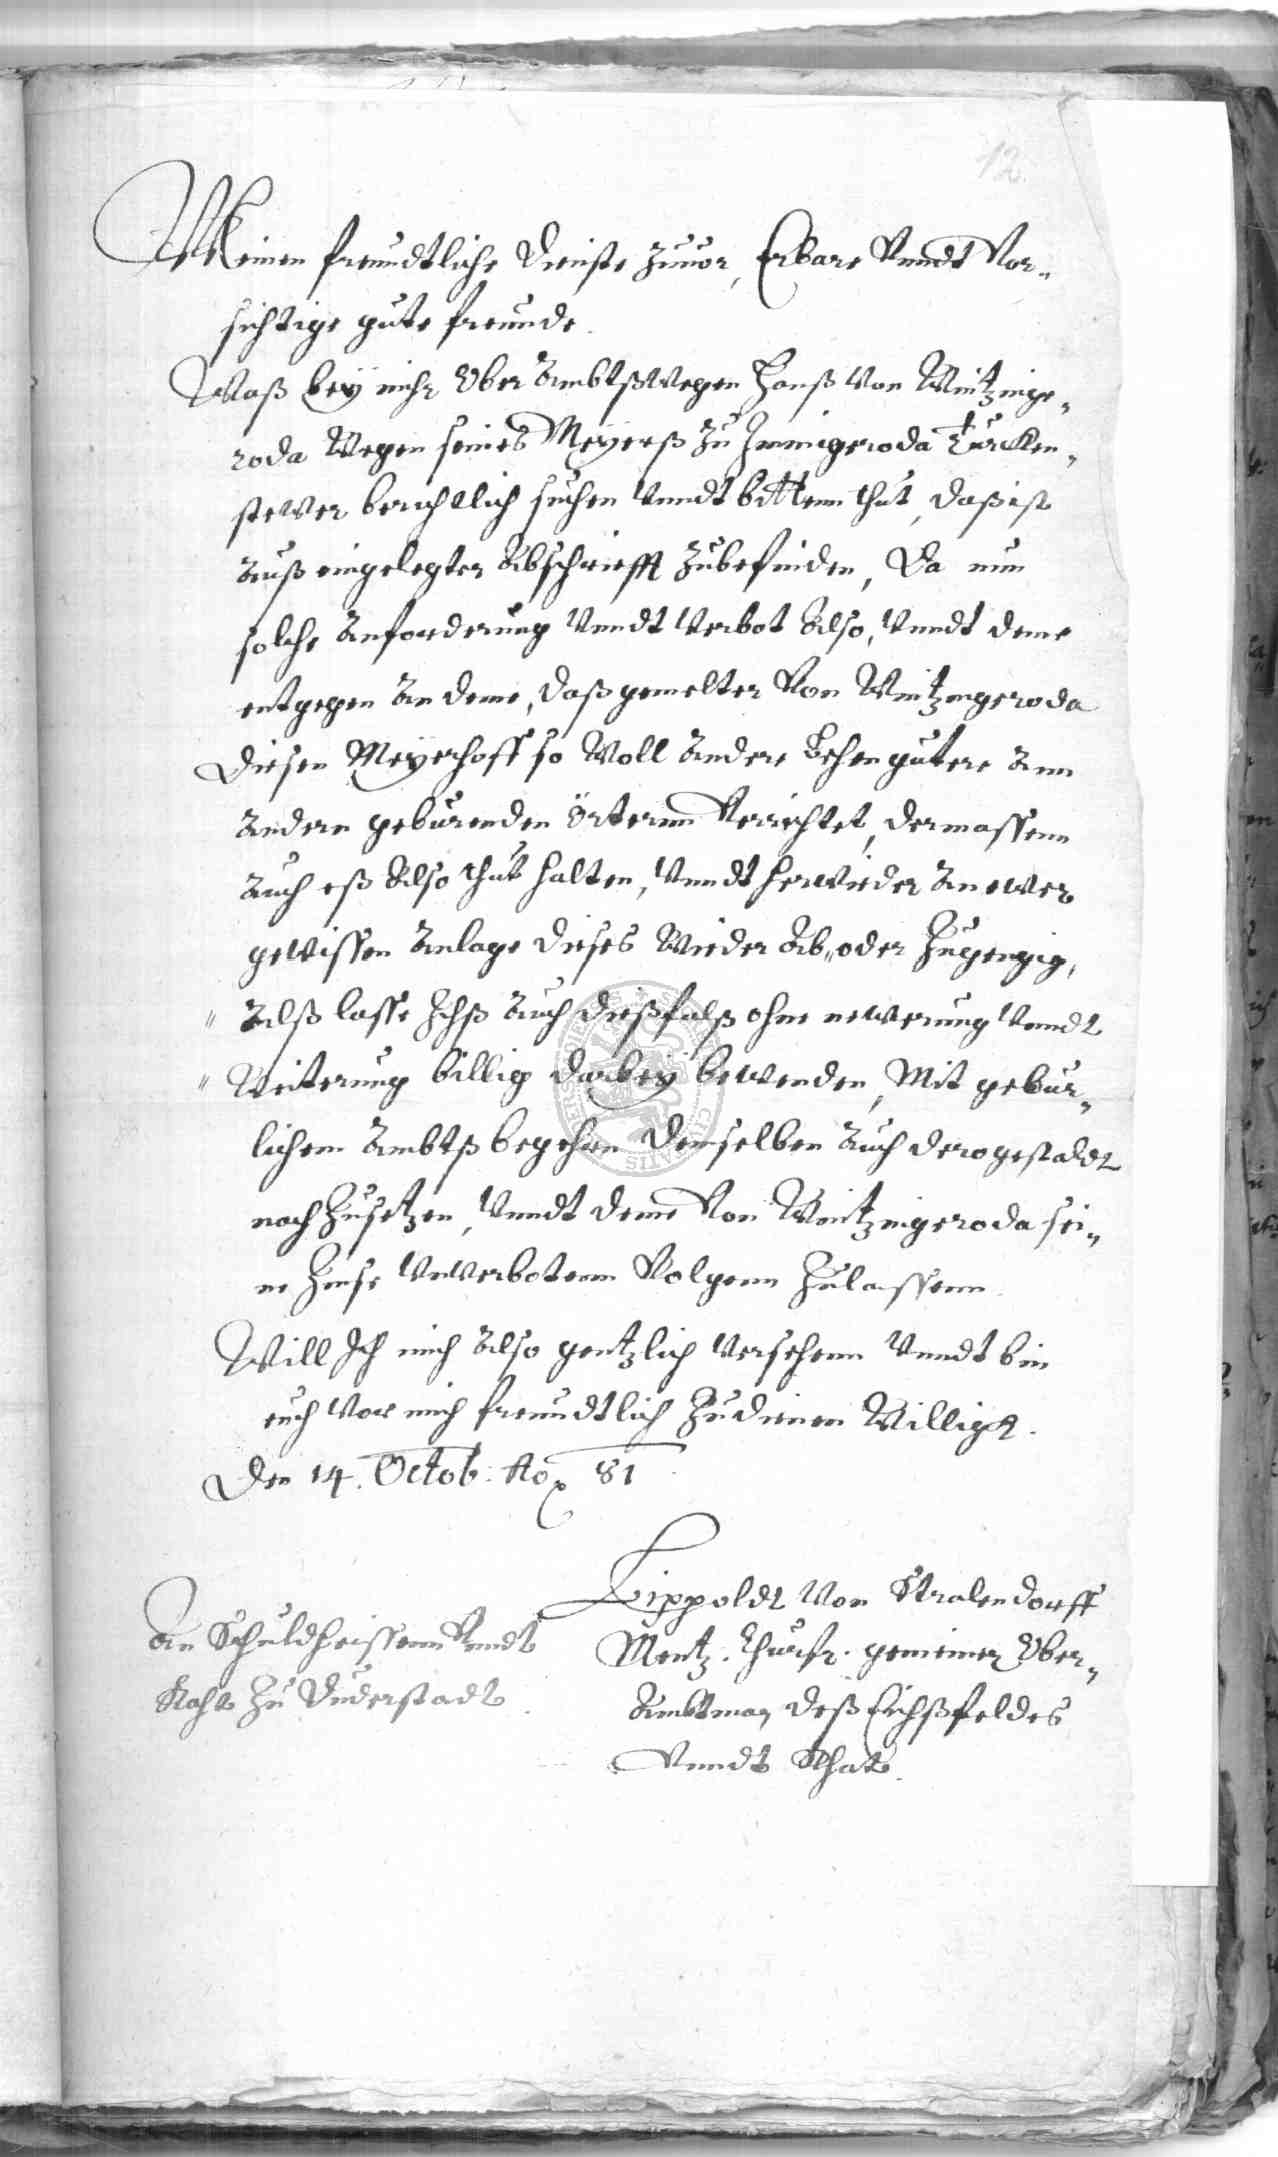 12.
Meinen freundtliche Dienste zuuor, Erbare Vnndt Vor„
sichtige gute freunde.
Waß bey mihr Ober Ambtßwegen Hanß Von Wintzinge„
roda Wegen seines Meyerß zu Immigeroda Türcken„
stewer berichtlich suchen Vnndt bittenn thut, daß ist
Auß eingelegter Abschriefft Zubefinden, Da nun
solche Anforderung Vnndt Verbot Also, Vnndt deme
entgegen An deme, daß gemelter Von Wintzingeroda
Diesen Meyerhoff so Woll Andere Lehengutere Ann
Andern geburenden örternn Verrichtet, dermassenn
Auch eß Also thut halten, Vnndt herwieder An ewer
gewissen Anlage dieses Wieder Ab„ oder Zugengig,
„ Alß lasse Ichß Auch dießfalß ohne newerung Vnndt
„ Weiterung billig darbey bewenden, Mit gebur„
lichem Ambtß begehren demselben Auch dero gestaldt
nach Zusetzen, Vnndt deme Von Wintzingeroda sei„
ne Zinse Vnverbotenn Volgenn Zulassenn
Will Ich mich Also gentzlich Versehenn Vnndt bin
euch Vor mich freundtlich Zudienen Willigk.
Den 14. Octob: Ao 81
Lippoldt Von Stralendorff
Mentz. Churfr. gemeiner Ober„
Ambtman deß Eichßfeldes
Vnndt Rhat.
An Schuldheissenn Vnndt
Raht Zu Duderstadt